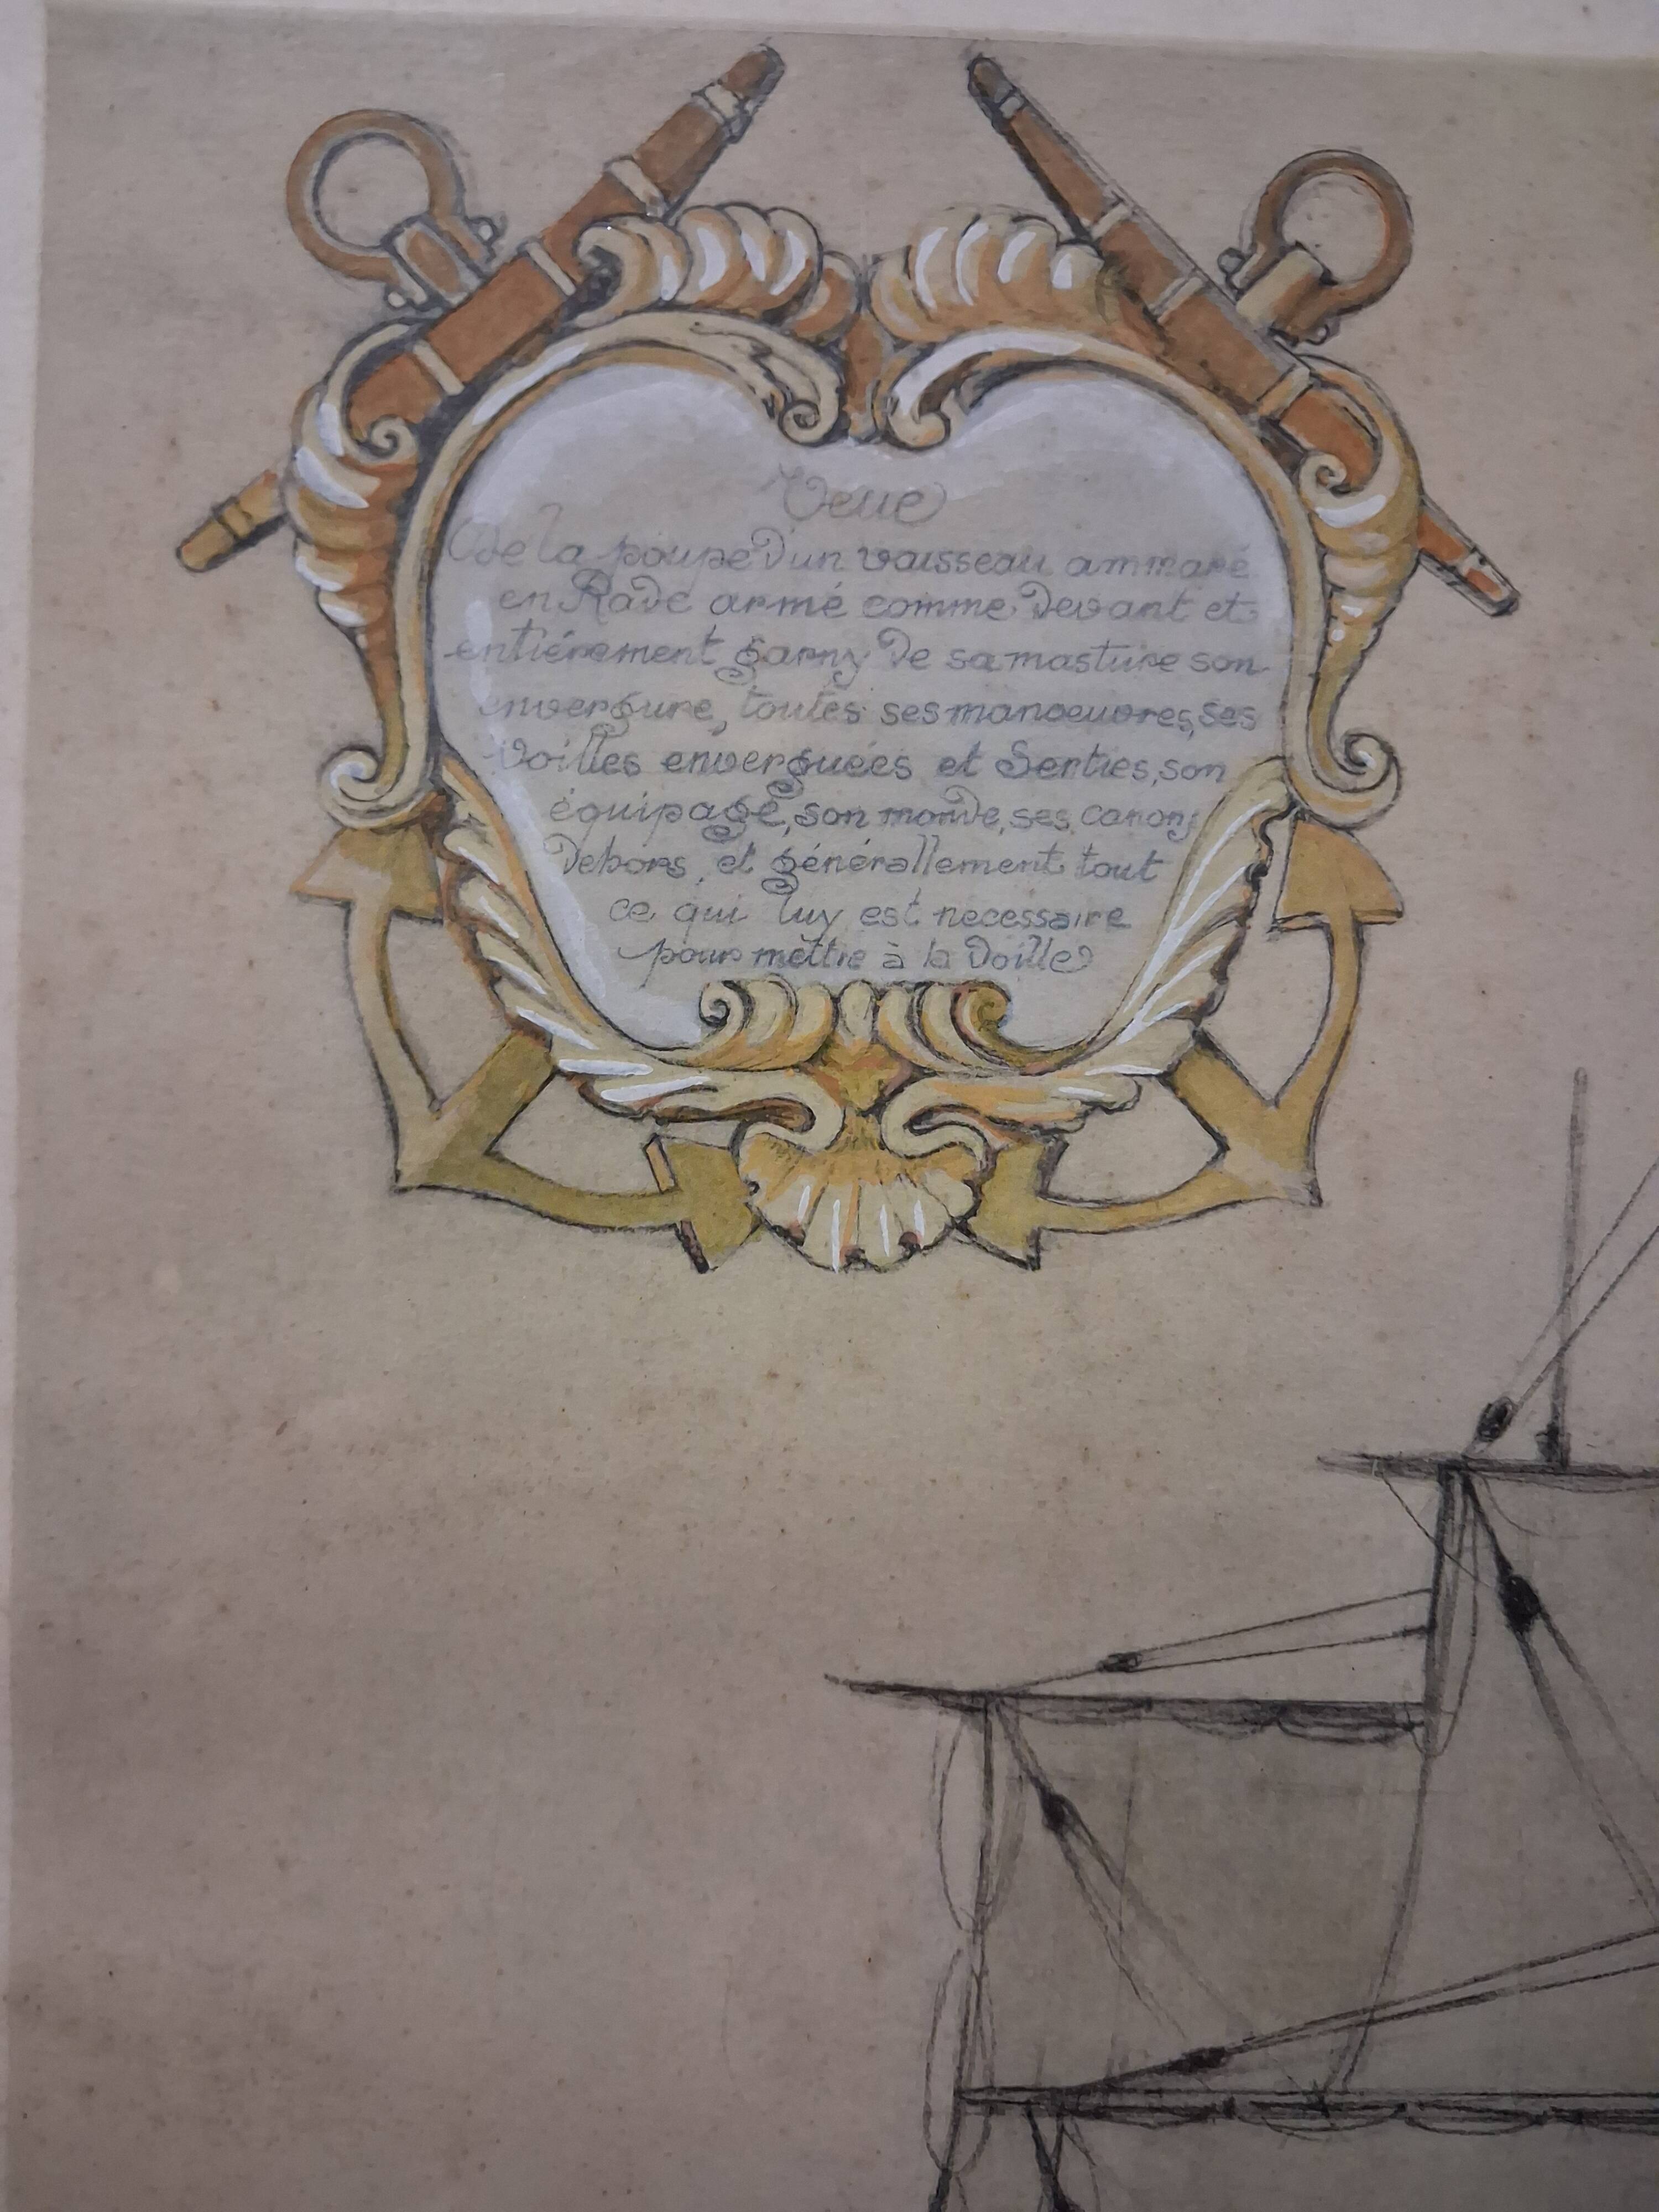 Veue
De la poupe d'un vaisseau ammaré
en Rade armé comme devant et
entiérement garny de sa masture son
envergure, toutes ses manoeuvres, ses
voilles enverguées et Serties, son
équipage, son monde, ses canons
dehors, et générallement tout
ce qui luy est necessaire
pour mettre à la voille